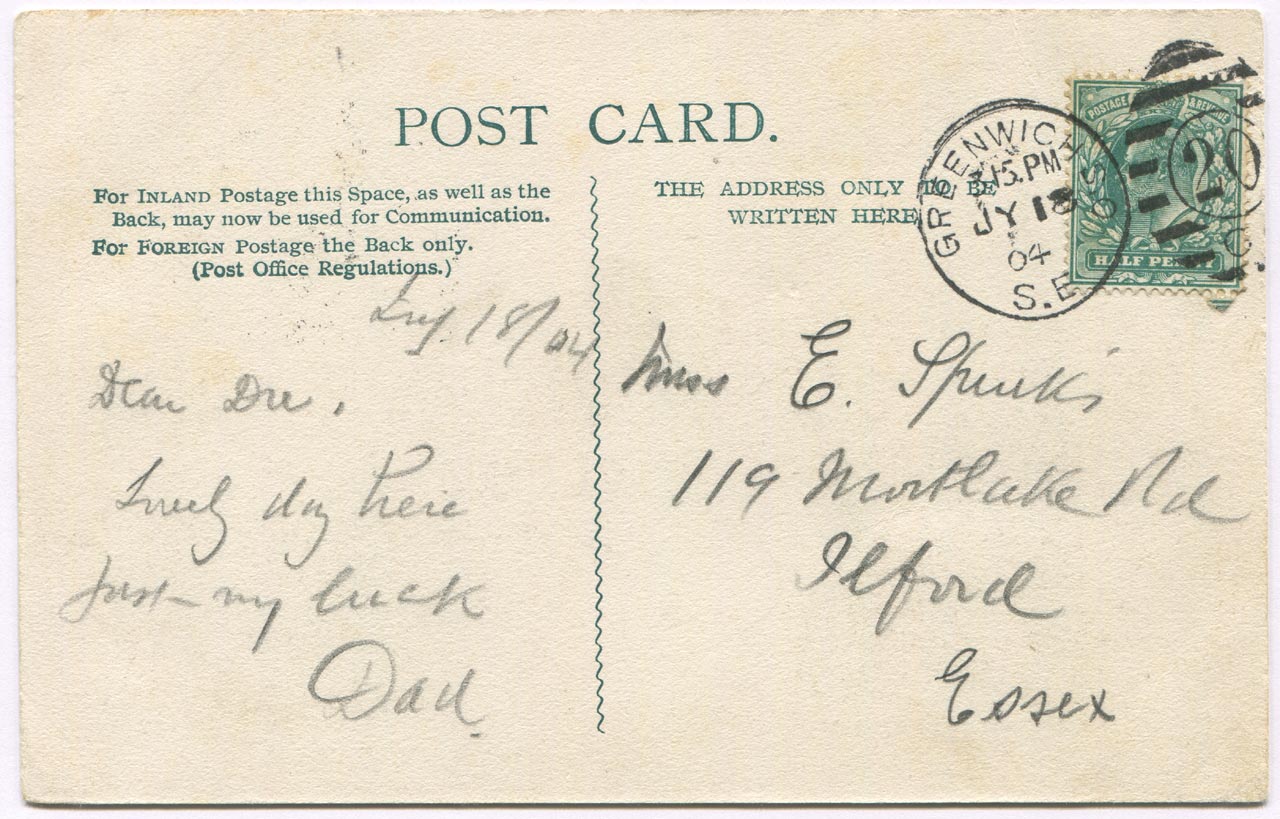 POST CARD.
For INLAND Postage this Space, as well as the
Back, may now be used for Communication.
For FOREIGN Postage the Back only.
(Post Office Regulations.)
18/04
Dear
Lovely day here
Just my luck
Dad
THE ADDRESS ONLY TO BE
WRITTEN HERE
GREENWICH S.O
15.PM
JY 18
04
S.E
POSTAGE & REVENUE
HALF PENNY
20
Miss E. Spinks
119 Mortlake Rd
Ilford
Essex